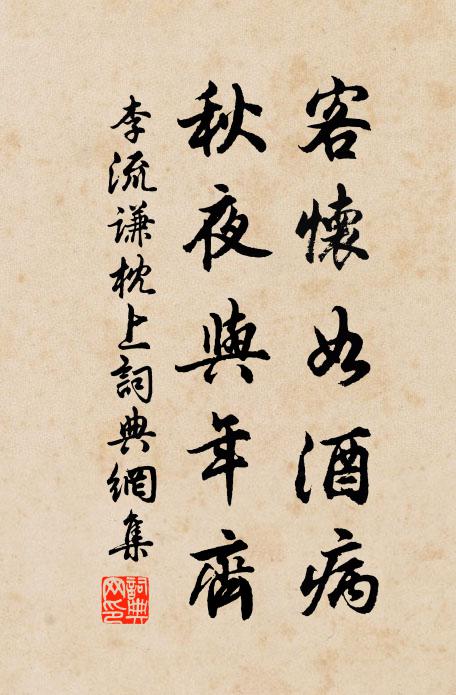 客懷如酒病
秋夜與年齊
李流謙枕上詞典網集
詞典網印